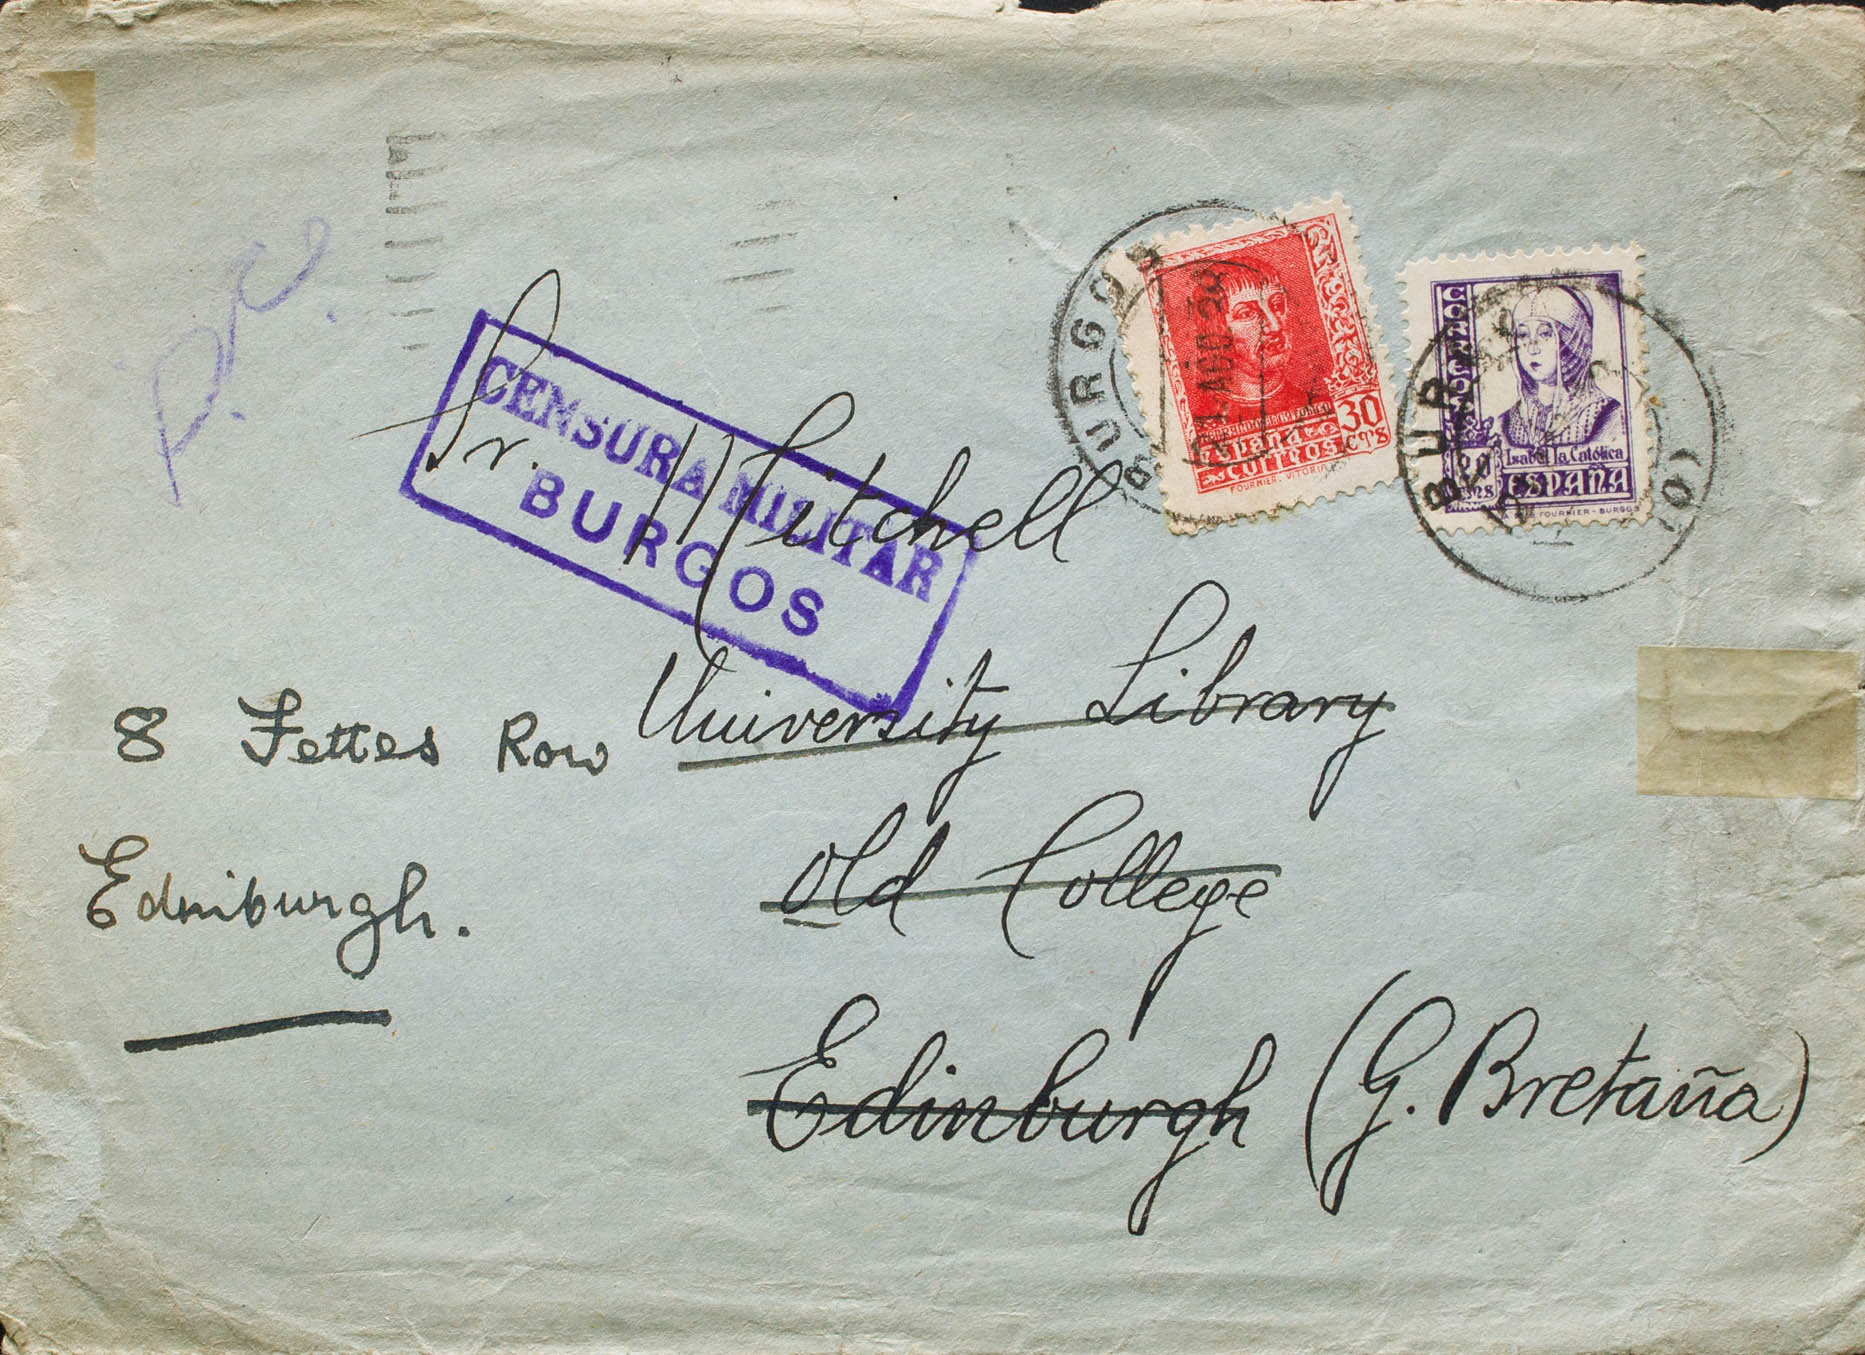 P.C.
Sr. Mitchell
University Library
Old College
Edinburgh (G. Bretaña)
8 Fettes Row
Edinburgh.
CENSURA MILITAR
BURGOS
BURGOS
AGO 38
30
CTS
CORREOS
FOURNIER. VITORIA
BUR
20
CTMS
Isabel la Católica
ESPAÑA
FOURNIER - BURGOS